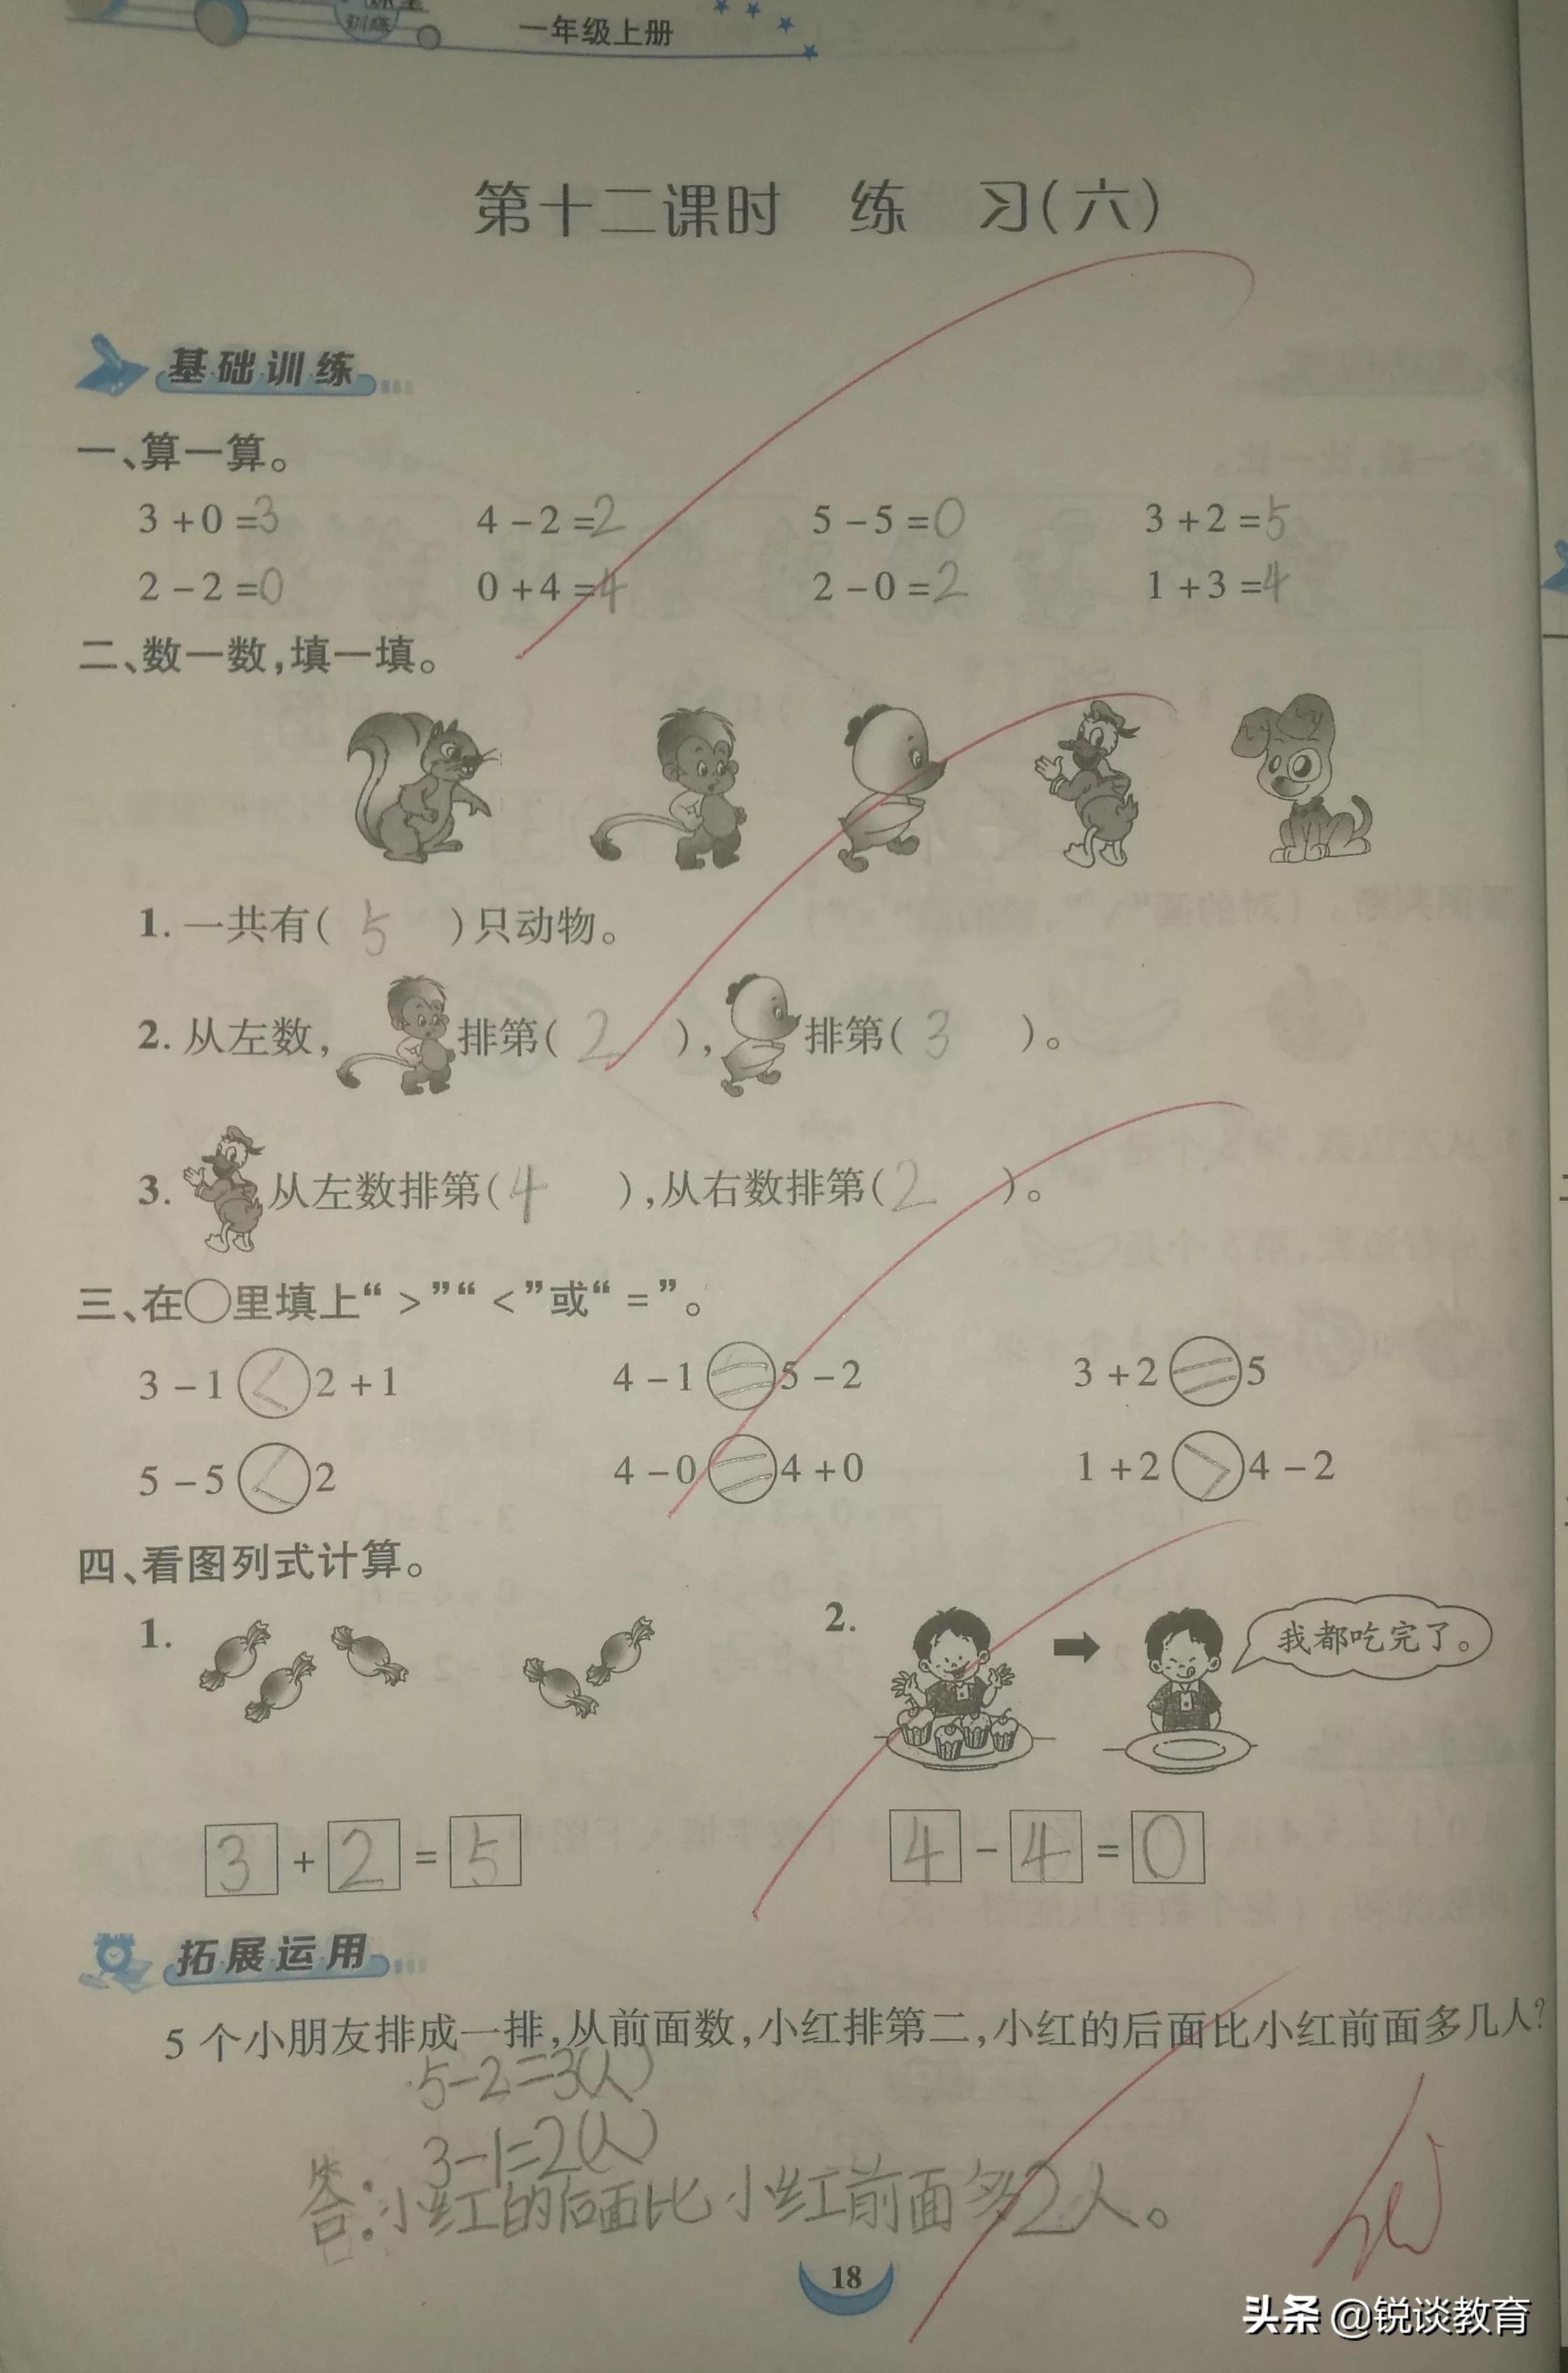 训练
一年级上册
第十二课时 练 习(六)
基础训练
一、算一算。
3+0=3 4-2=2 5-5=0 3+2=5
2-2=0 0+4=4 2-0=2 1+3=4
二、数一数,填一填。
1. 一共有( 5 )只动物。
2. 从左数, 排第( 2 ), 排第( 3 )。
3. 从左数排第( 4 ),从右数排第( 2 )。
三、在○里填上“>”“<”或“=”。
3-1<2+1 4-1=5-2 3+2=5
5-5<2 4-0=4+0 1+2>4-2
四、看图列式计算。
1. 2. 我都吃完了。
3+2=5 4-4=0
拓展运用
5个小朋友排成一排,从前面数,小红排第二,小红的后面比小红前面多几人?
5-2=3(人)
3-1=2(人)
答:小红的后面比小红前面多2人。
18
头条 @锐谈教育